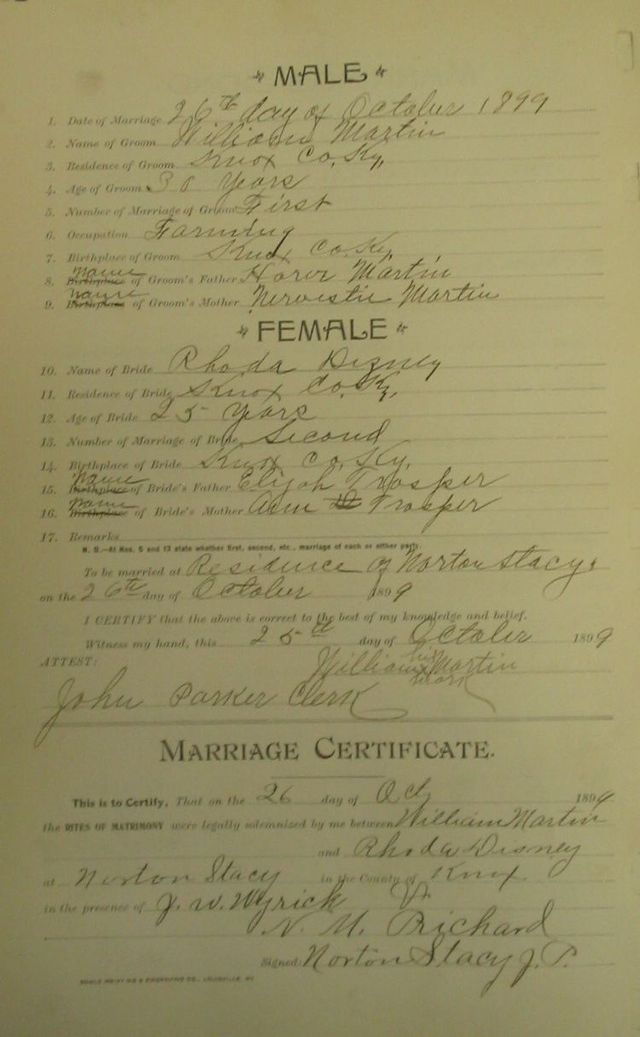 MALE
1. Date of Marriage 26th day of October 1899
2. Name of Groom William Martin
3. Residence of Groom Knox Co. Ky.
4. Age of Groom 30 Years
5. Number of Marriage of Groom First
6. Occupation Farming
7. Birthplace of Groom Knox Co. Ky.
8. Birthplace Name of Groom's Father Martin
9. Birthplace Name of Groom's Mother Martin
FEMALE
10. Name of Bride Rhoda Dizney
11. Residence of Bride Knox Co. Ky.
12. Age of Bride 25 Years
13. Number of Marriage of Bride Second
14. Birthplace of Bride Knox Co. Ky.
15. Birthplace Name of Bride's Father Elijah Trosper
16. Birthplace Name of Bride's Mother Ann Trosper
17. Remarks
N. B.—At Nos. 5 and 13 state whether first, second, etc., marriage of each or either party.
To be married at Residence of Norton Stacy.
on the 26th day of October 1899
I CERTIFY that the above is correct to the best of my knowledge and belief.
Witness my hand, this 25th day of October 1899
ATTEST: William his x mark Martin
John Parker Clerk
MARRIAGE CERTIFICATE.
This is to Certify, That on the 26 day of Oct, 1899
the RITES OF MATRIMONY were legally solemnized by me between William Martin
and Rhoda Disney
at Norton Stacy in the County of Knox
in the presence of J. W. Wyrick
N. M. Prichard
Signed: Norton Stacy J. P.